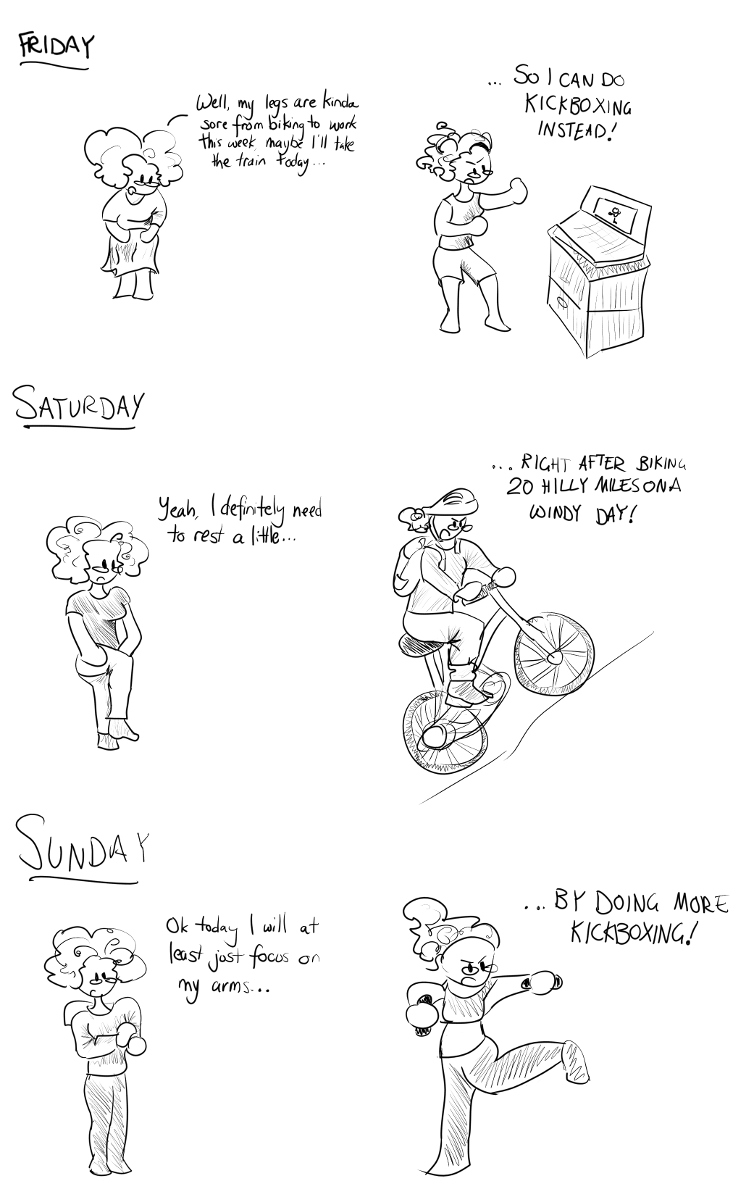 FRIDAY
Well, my legs are kinda
sore from biking to work
this week, maybe I'll take
the train today...
... SO I CAN DO
KICKBOXING
INSTEAD!
SATURDAY
Yeah, I definitely need
to rest a little...
... RIGHT AFTER BIKING
20 HILLY MILES ON A
WINDY DAY!
SUNDAY
Ok today I will at
least just focus on
my arms...
... BY DOING MORE
KICKBOXING!